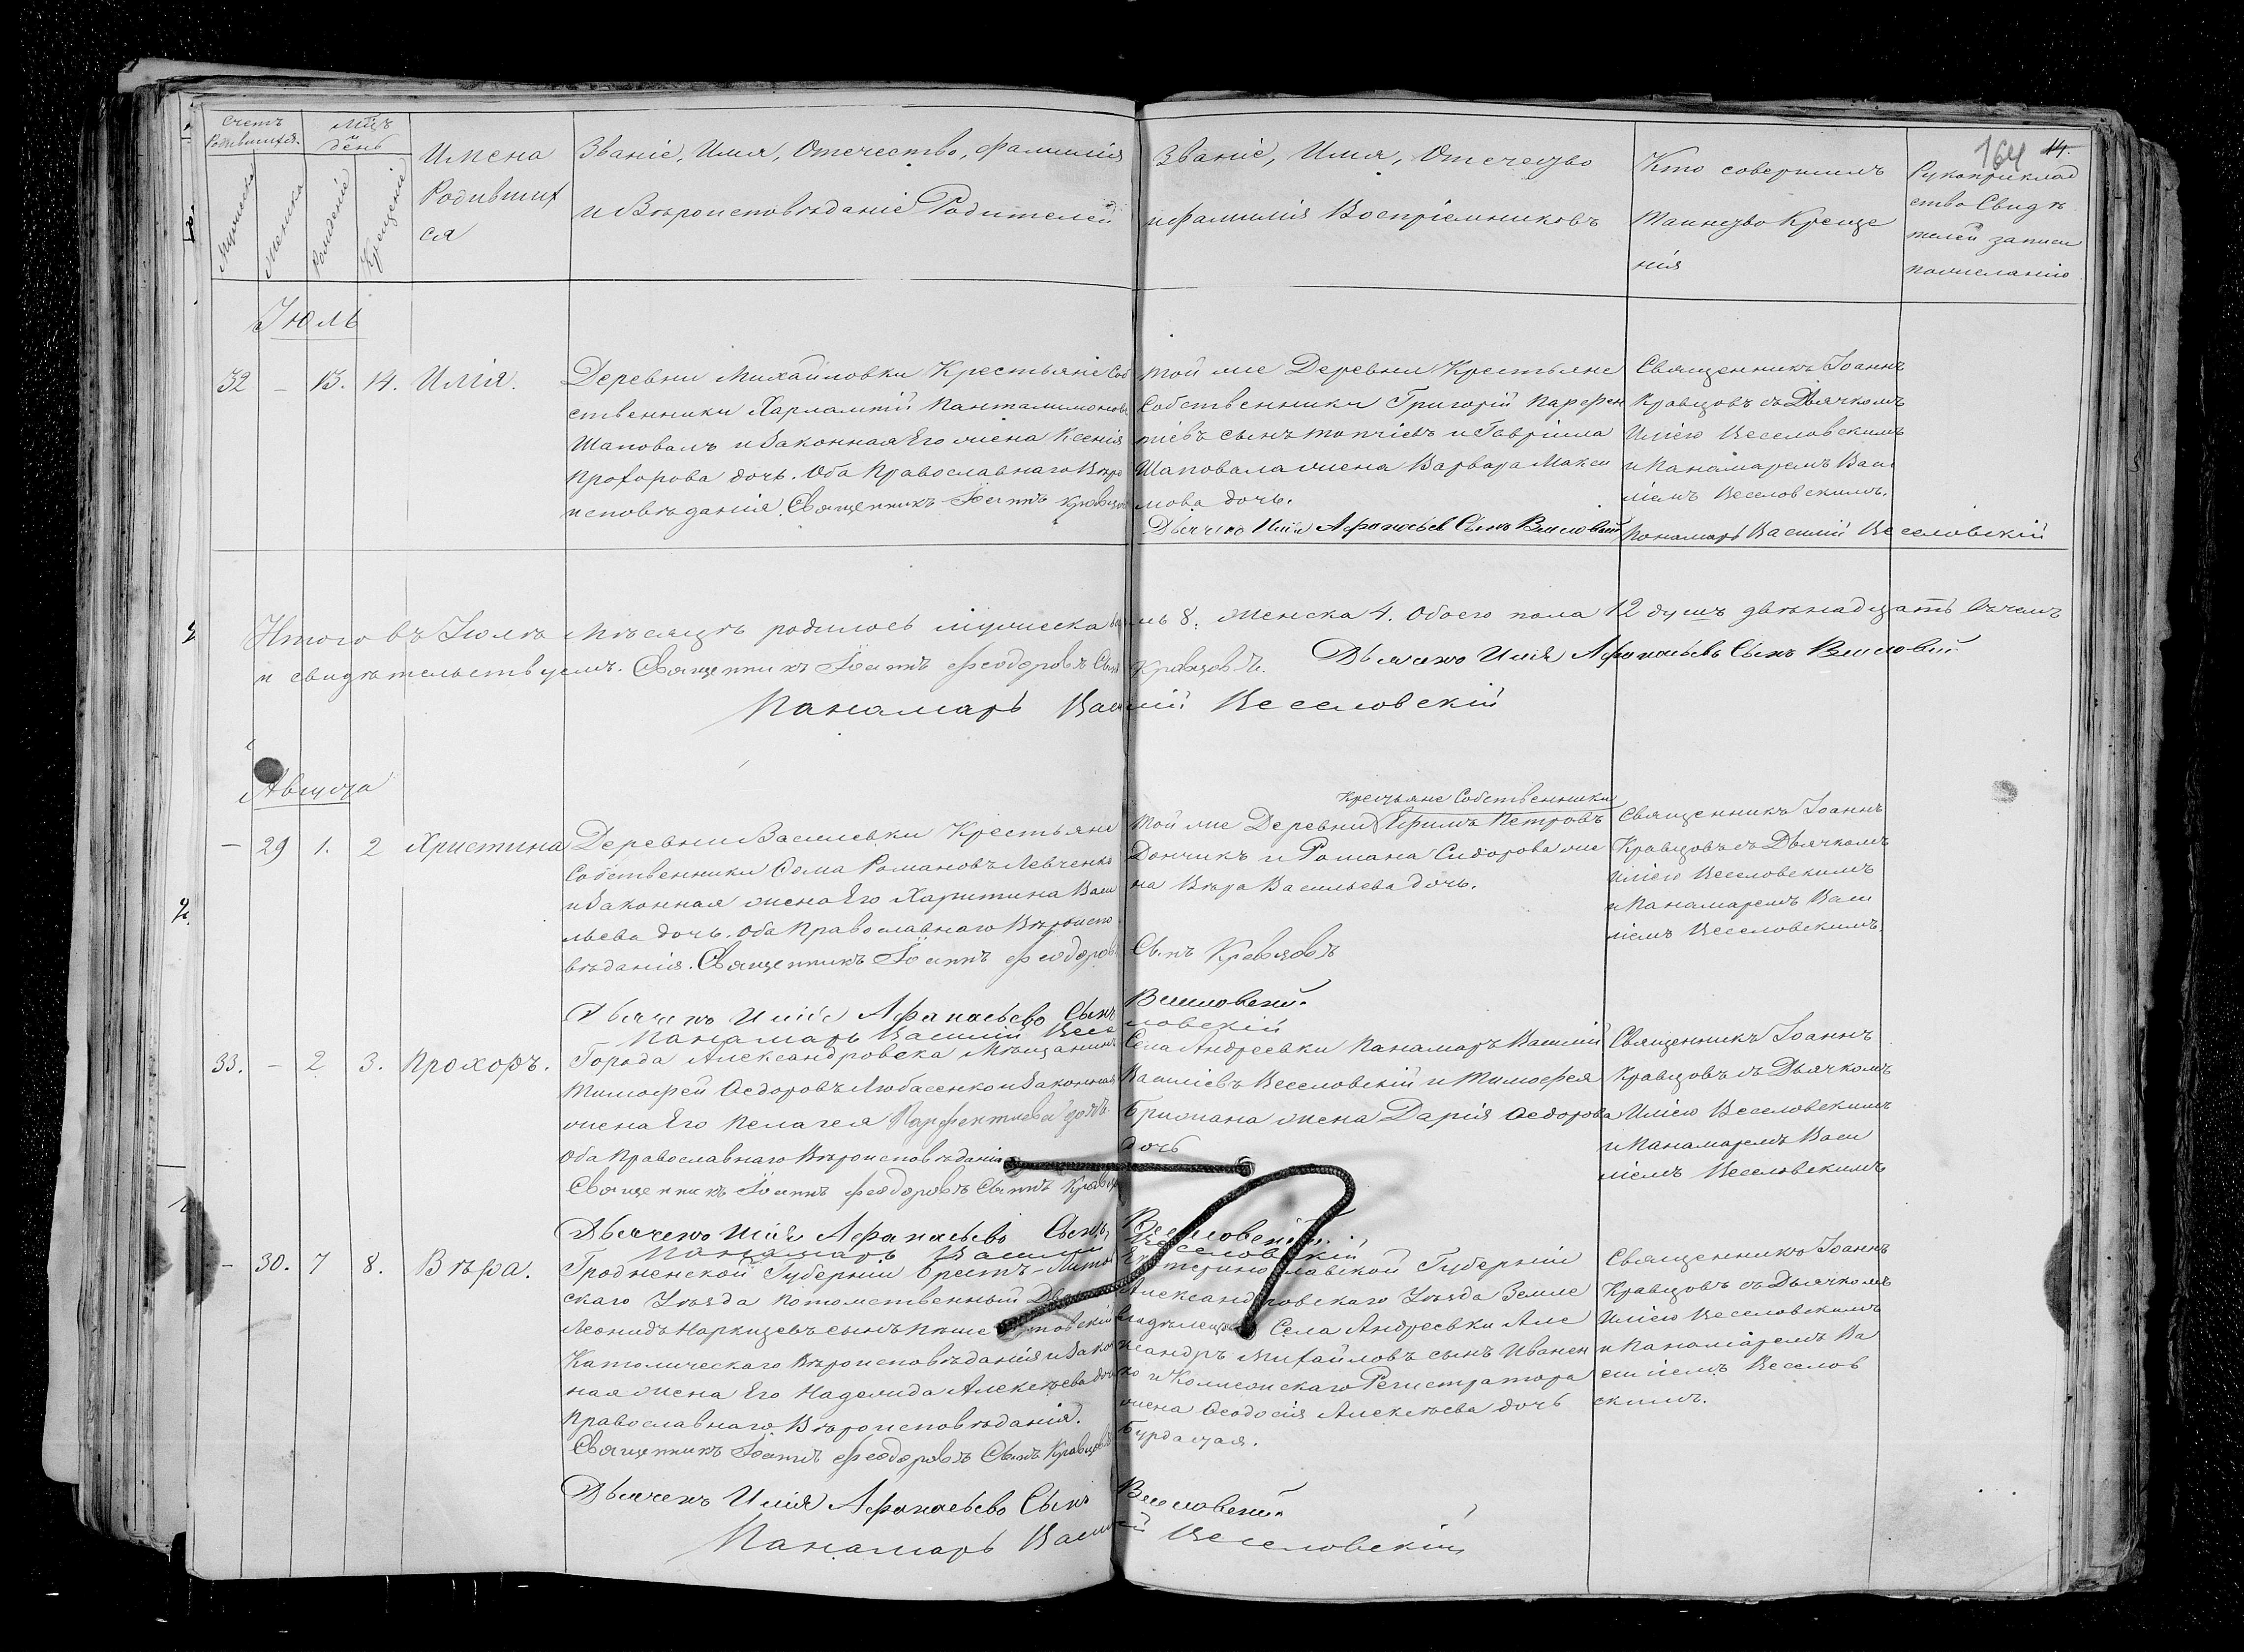 164 14.
Счетъ Родившихся. Мѣц҃ъ и день Имена Родившихся Званіе, Имя, Отечество, Фамилія и Вѣроисповѣданіе Родителей Званіе, Имя, Отечество и фамилія Воспріемниковъ Кто совершилъ Таинство Крещенія Рукоприкладство Свидѣтелей записи по желанію
Мужеска Женска Рожденіе Крещеніе
Іюль
32 – 13. 14. Илія.
Деревни Михайловки Крестьяне Соб
ственники Харлампій Панталимоновъ
Шаповалъ и Законная Его жена Ксенія
Прохорова дочь. Оба Православнаго Вѣро
исповѣданія. Священникъ Іоаннъ Кравцовъ
Той же Деревни Крестьяне
Собственники Григорій Парфен
тіевъ сынъ и Гавріила
Шаповала жена Варвара Макси
мова дочь.
Дьячекъ Илія Афанасьевъ Сынъ Веселовскій
Священникъ Іоаннъ
Кравцовъ съ Дьячкомъ
Иліею Веселовскимъ
и Панамаремъ Васи
ліемъ Веселовскимъ.
Панамарь Василій Веселовскій
Итого въ Іюлѣ Мѣсяцѣ родилось мужеска 8. Женска 4. Обоего пола 12 душъ двѣнадцать въ чемъ
и свидѣтельствуемъ. Священникъ Іоаннъ Феодоровъ Сынъ Кравцовъ. Дьячекъ Илія Афанасьевъ Сынъ Веселовскій
Панамарь Василій Веселовскій
Августа
– 29 1. 2 Христина
Деревни Васильевки Крестьяне
Собственники Ѳома Романовъ Левченко
и Законная жена Его Харитина Васи
льева дочь. Оба Православнаго Вѣроиспо
вѣданія. Священникъ Іоаннъ Феодоровъ Сынъ Кравцовъ
Дьячекъ Илія Афанасьевъ Сынъ Веселовскій.
Панамарь Василій Веселовскій
Крестьяне Собственники
Той же Деревни Ефимъ Петровъ
Дончикъ и Романа Сидорова же
на Вѣра Васильева дочь.
Священникъ Іоаннъ
Кравцовъ съ Дьячкомъ
Иліею Веселовскимъ
и Панамаремъ Васи
ліемъ Веселовскимъ.
33. – 2 3. Прохоръ.
Города Александровска Мѣщанинъ
Тимофей Ѳедоровъ Любасенко и Законная
жена Его Пелагея дочь.
Оба Православнаго Вѣроисповѣданія
Священникъ Іоаннъ Феодоровъ Сынъ Кравцовъ
Дьячекъ Илія Афанасьевъ Сынъ Веселовскій.
Панамарь Василій Веселовскій
Села Андреевки Панамарь Василій
Василіевъ Веселовскій и Тимофея
Брижана жена Дарія Ѳедорова
дочь
Священникъ Іоаннъ
Кравцовъ съ Дьячкомъ
Иліею Веселовскимъ
и Панамаремъ Васи
ліемъ Веселовскимъ
– 30. 7 8. Вѣра.
Гродненской Губерніи Брестъ-Литов
скаго Уѣзда потомственный
Леонидъ Наркизовъ сынъ
Католическаго Вѣроисповѣданія и Закон
ная жена Его Надежда Алексѣева дочь
Православнаго Вѣроисповѣданія.
Священникъ Іоаннъ Феодоровъ Сынъ Кравцовъ
Дьячекъ Илія Афанасьевъ Сынъ Веселовскій
Панамарь Василій Веселовскій
Екатеринославской Губерніи
Александровскаго Уѣзда Земле
владѣлецъ Села Андреевки Але
ксандръ Михайловъ сынъ Иванен
ко и Колежскаго Регистратора
жена Ѳеодосія Алексѣева дочь
Бурдацая.
Священникъ Іоаннъ
Кравцовъ съ Дьячкомъ
Иліею Веселовскимъ
и Панамаремъ Ва
силіемъ Веселов
скимъ.